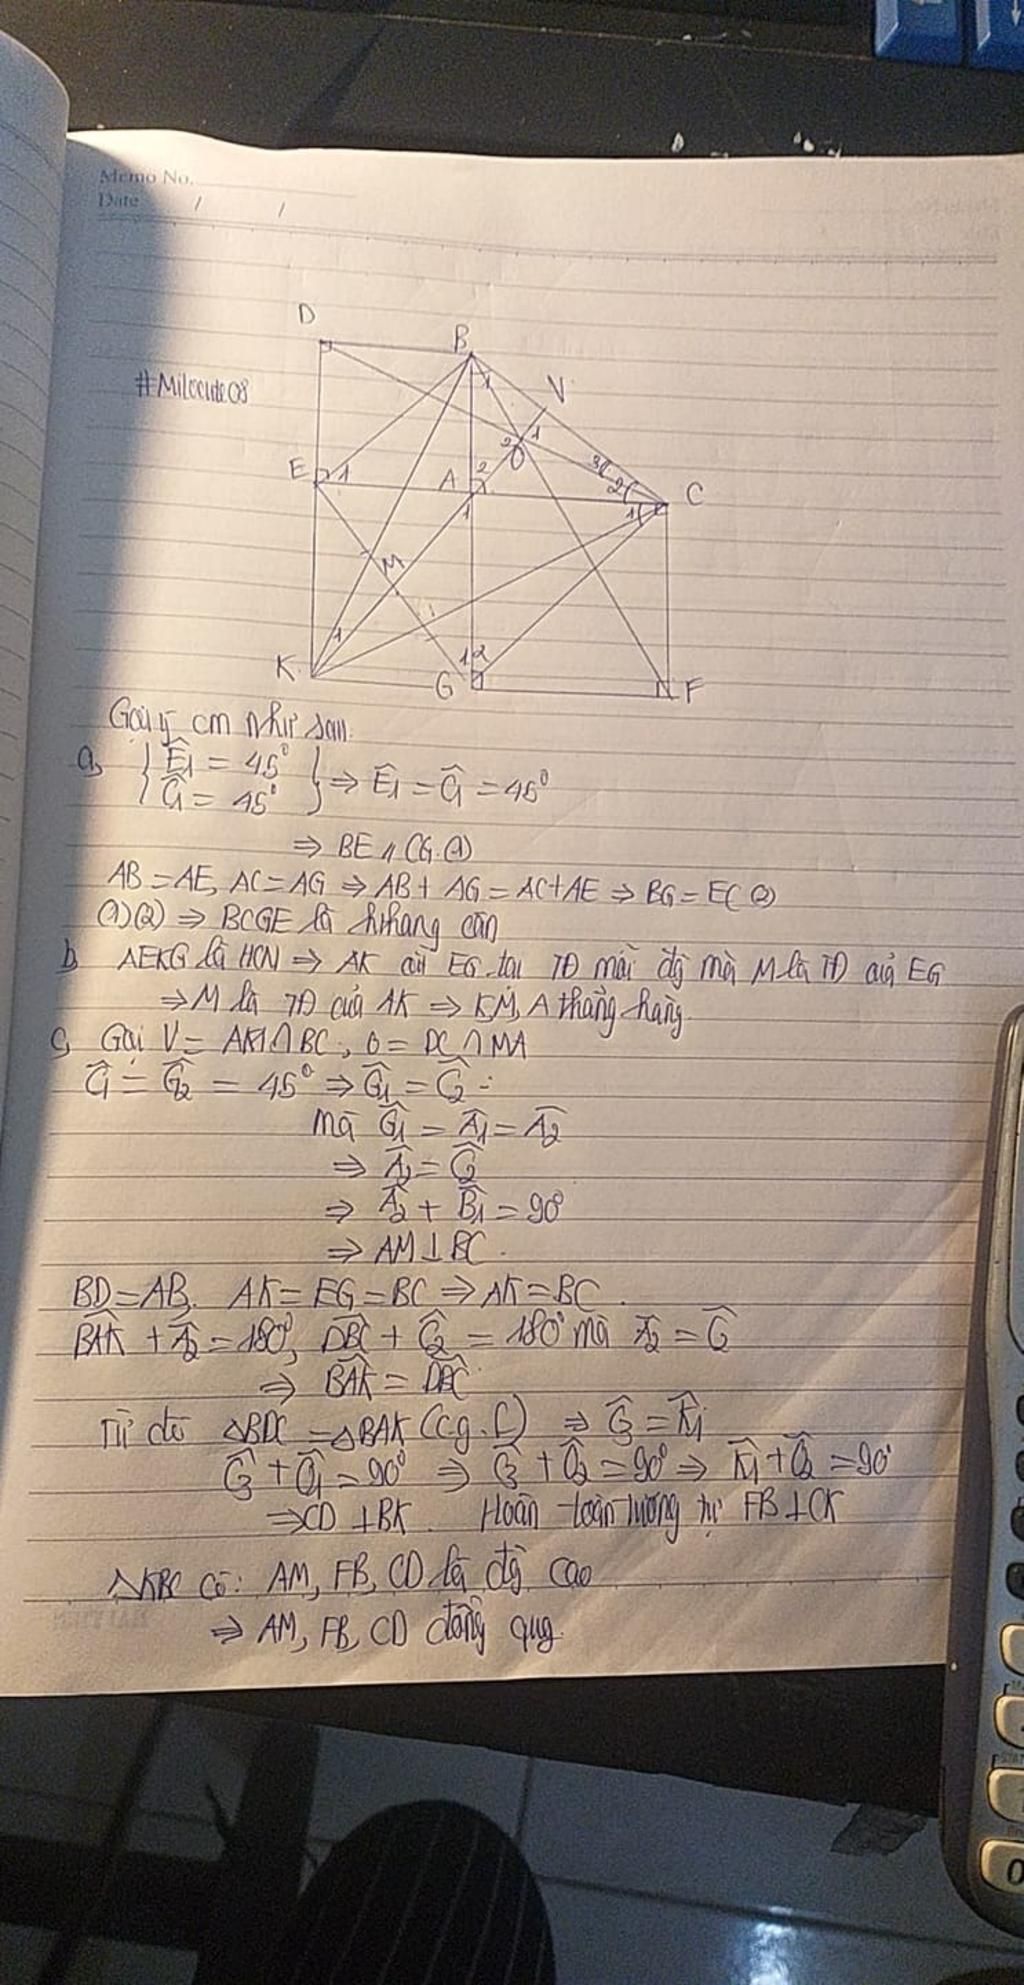 Memo No.
Date / /
#Milocute08
D
B
V
1
2 1
O
E 1
A 2
3
2
C
1
1
M
1
K
1 2
G
F
Gợi ý cm như sau:
a, { Ê1 = 45°
Ĝ1 = 45° } ⇒ Ê1 = Ĝ1 = 45°
⇒ BE // CG (1)
AB = AE, AC = AG ⇒ AB + AG = AC + AE ⇒ BG = EC (2)
(1)(2) ⇒ BCGE là hthang cân
b, AEKG là HCN ⇒ AK cắt EG tại TĐ mỗi đg mà M là TĐ của EG
⇒ M là TĐ của AK ⇒ K, M, A thẳng hàng.
c, Gọi V = AM ∩ BC, O = DC ∩ MA
Ĉ1 = Ĝ2 = 45° ⇒ Ĝ1 = Ĉ2
mà Ĝ1 = Â1 = Â2
⇒ Â2 = Ĉ2
⇒ Â2 + B̂1 = 90°
⇒ AM ⊥ BC.
BD = AB, AK = EG = BC ⇒ AK = BC.
BAK + Â2 = 180°, DBC + Ĉ2 = 180° mà Â2 = Ĉ
⇒ BAK = DBC
Từ đó △BDC = △BAK (c.g.c) ⇒ Ĉ3 = K̂1
Ĉ3 + Ô1 = 90° ⇒ Ĉ3 + Ô2 = 90° ⇒ K̂1 + Ô2 = 90°
⇒ CD ⊥ BK. Hoàn toàn tương tự FB ⊥ CK
△KBC có: AM, FB, CD là đg cao
⇒ AM, FB, CD đồng quy.
0